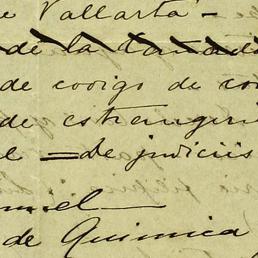 e Vallarta –
de la
de codigo de co
de estrangeri
l = de judicis
nsel
de Quimica